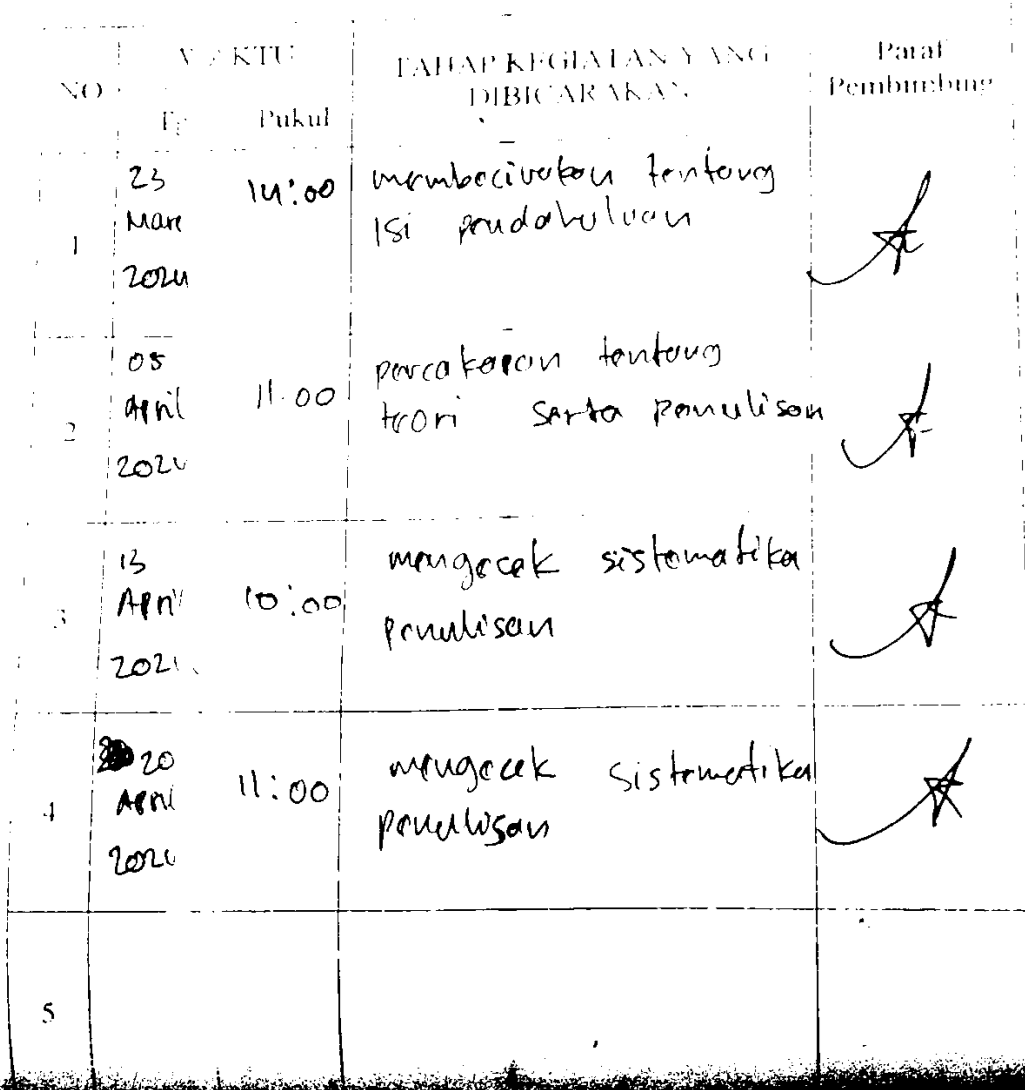 NO WAKTU TAHAP KEGIATAN YANG Paraf
DIBICARAKAN Pembimbing
Pukul
1 23 Mare 2024 14:00 membicirakan tentang
isi pendahuluan
2 05 April 202 11.00 percakapan tentang
teori serta penulisan
3 13 April 202 10:00 mengecek sistematika
penulisan
4 20 April 202 11:00 mengecek sistematika
penulisan
5